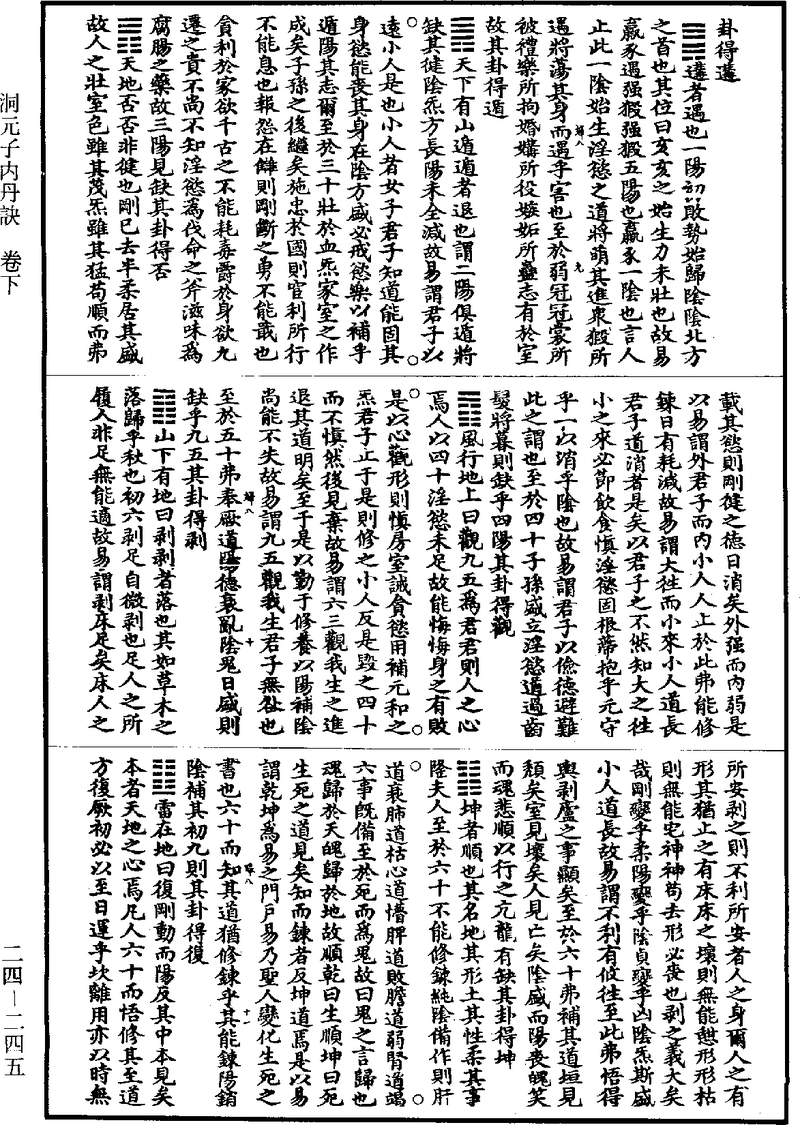 卦得遘
䷫遘者遇也一陽初敗勢始歸陰陰北方
之首也其位曰亥亥之始生力未壯也故易
羸豕遇强猳强猳五陽也羸豕一陰也言人
止此一陰始生淫慾之道將萌其進衆猳所
遇將蕩其身而遇乎害也至於弱冠冠裳所
被禮樂所拘婚媾所役嫉妬所蠱志有於室
故其卦得遁
䷠天下有山遁遁者退也謂二陽俱遁將
缺其健陰炁方長陽未全減故易謂君子以
遠小人是也小人者女子君子知道能固其
身慾能喪其身在陰方盛必戒慾樂以補乎
遁陽其志爾至於三十壯於血炁家室之作
成矣子孫之後繼矣施忠於國則官利所行
不能息也報怨在讎則剛斷之勇不能戢也
貪利於家欲千古之不能耗毒爵於身欲九
遷之貴不尚不知淫慾爲伐命之斧滋味爲
腐腸之藥故三陽見缺其卦得否
䷋天地否否非健也剛已去半柔居其盛
故人之壯室色雖其茂炁雖其猛苟順而弗
載其慾則剛健之德日消矣外强而内弱是
以易謂外君子而内小人人止於此弗能修
鍊日有耗減故易謂大往而小來小人道長
君子道消者是矣以君子之不然知大之往
小之來必節飲食慎淫慾固根蒂抱乎元守
乎一以消乎陰也故易謂君子以儉德避難
此之謂也至於四十子孫盛立淫慾過過齒
髮將暮則缺乎四陽其卦得觀
䷓風行地上曰觀九五爲君君則人之心
焉人以四十淫慾未足故能悔悔身之有敗
是以心觀形則慎房室誡貪慾用補元和之
炁君子止于是則修之小人反是毁之四十
而不慎然後見棄故易謂六三觀我生之進
退其道明矣至于是以勤于修養以陽補陰
尚能不失故易謂九五觀我生君子無咎也
至於五十弗奉厥道陽德衰亂陰鬼日盛則
缺乎九五其卦得剥
䷖山下有地曰剥剥者落也其如草木之
落歸乎秋也初六剥足自微剥也足人之所
履人非足無能適故易謂剥床足矣床人之
所安剥之則不利所安者人之身爾人之有
形其猶止之有床床之壞則無能憩形形枯
則無能宅神神苟去形必喪也剥之義大矣
哉剛變乎柔陽變乎陰貞變乎凶陰炁斯盛
小人道長故易謂不利有攸往至此弗悟得
輿剥廬之事顯矣至於六十弗補其道垣見
頹矣室見壞矣人見亡矣陰盛而陽喪魄笑
而魂悲順以行之亢龍有缺其卦得坤
䷁坤者順也其名地其形土其性柔其事
隆夫人至於六十不能修鍊純陰備作則肝
道衰肺道枯心道懵脾道敗膽道弱腎道竭
六事旣備至於死而爲鬼故曰鬼之言歸也
魂歸於天魄歸於地故順乾曰生順坤曰死
生死之道見矣知而鍊者反坤道焉是以易
謂乾坤爲易之門戶易乃聖人變化生死之
書也六十而知其道猶修鍊乎其能鍊陽銷
陰補其初九則其卦得復
䷗雷在地曰復剛動而陽反其中本見矣
本者天地之心焉凡人六十而悟修其至道
方復厥初必以至日運乎坎離用亦以時無
洞元子内丹訣　卷下
二四—二四五